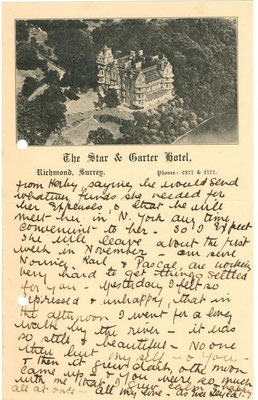 The Star & Garter Hotel,
Richmond, Surrey. Phones: 2377 & 2177.
from Herby, saying he would send
whatever funds she needed for
her Expenses, & that he will
meet her in N. York any time
convenient to her - So I Expect
she will leave about the first
week in November - am sure
Karl & Pascal, are working
very hard to get things settled
for you - yesterday I felt so
depressed & unhappy, that in
the afternoon I went for a long
walk by the river - it was
so still & beautiful - No one
there but my self - & you -
& then it grew dark, & the moon
came up - & you were so much
with me that I grew calm & happy
all at once - All my love -